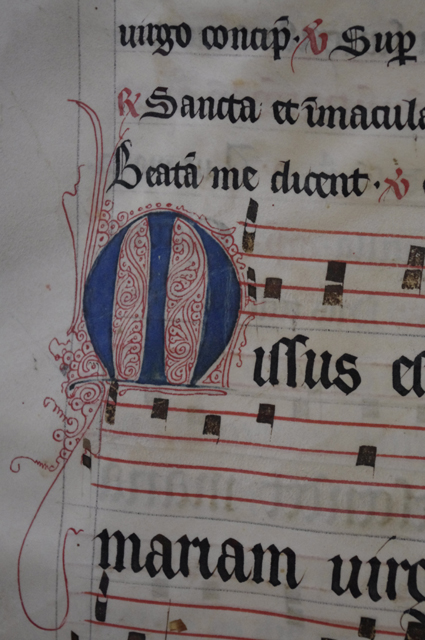 uirgo concip̄. ℣ Sup̱
℟ Sancta et īmacula
Beatā me dicent. ℣
Missus es
mariam uirg